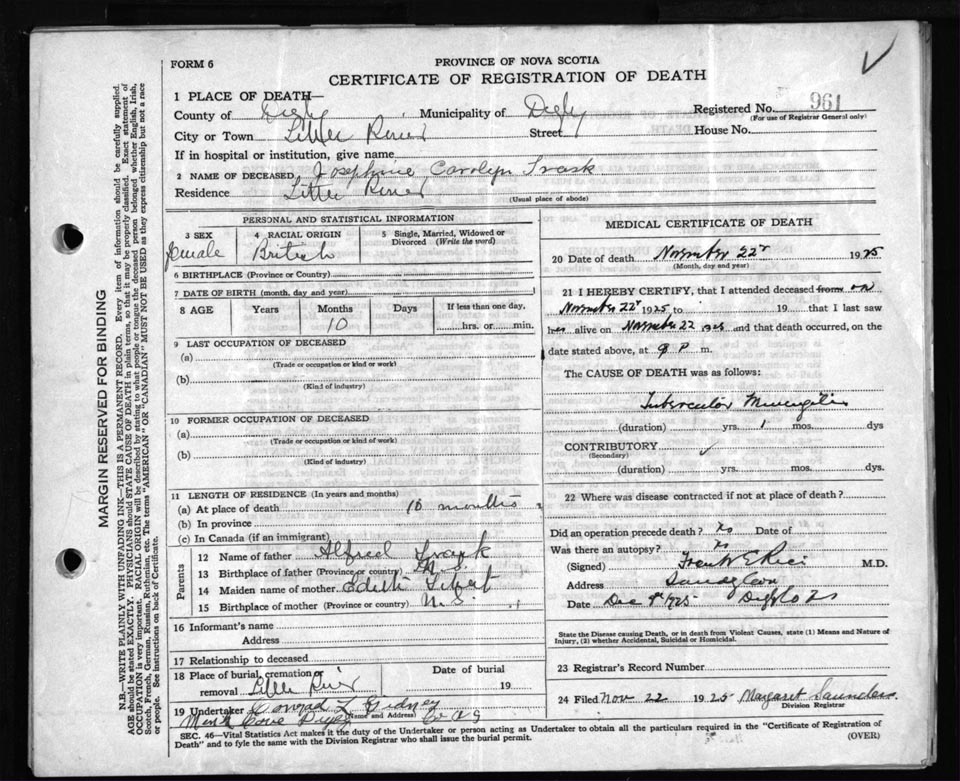 FORM 6
PROVINCE OF NOVA SCOTIA
CERTIFICATE OF REGISTRATION OF DEATH
1 PLACE OF DEATH—
County of Digby Municipality of Digby Registered No. 961
(For use of Registrar General only)
City or Town Little River Street House No.
If in hospital or institution, give name
2 NAME OF DECEASED Josephine Carolyn Trask
Residence Little River
(Usual place of abode)
PERSONAL AND STATISTICAL INFORMATION
3 SEX 4 RACIAL ORIGIN 5 Single, Married, Widowed or Divorced (Write the word)
female British
6 BIRTHPLACE (Province or Country)
7 DATE OF BIRTH (month, day and year)
8 AGE Years Months Days If less than one day,
10 hrs. or min.
9 LAST OCCUPATION OF DECEASED
(a)
(Trade or occupation or kind or work)
(b)
(Kind of industry)
10 FORMER OCCUPATION OF DECEASED
(a)
(Trade or occupation or kind of work)
(b)
(Kind of industry)
11 LENGTH OF RESIDENCE (In years and months)
(a) At place of death 10 months
(b) In province
(c) In Canada (if an immigrant)
Parents
12 Name of father Alfred Trask
13 Birthplace of father (Province or country) N.S.
14 Maiden name of mother Edith
15 Birthplace of mother (Province or country) N.S.
16 Informant's name
Address
17 Relationship to deceased
18 Place of burial, cremation or Date of burial
removal Little River 19
19 Undertaker Conrad L Gidney
(Name and Address)
Mink Cove Digby Co N S
MEDICAL CERTIFICATE OF DEATH
20 Date of death November 22 1925
(Month, day and year)
21 I HEREBY CERTIFY, that I attended deceased from on
November 22 1925 to 19 that I last saw
her alive on November 22 1925 and that death occurred, on the
date stated above, at 9 P m.
The CAUSE OF DEATH was as follows:
Tubercular Meningitis
(duration) yrs. 1 mos. dys
CONTRIBUTORY
(Secondary)
(duration) yrs. mos. dys.
22 Where was disease contracted if not at place of death?
Did an operation precede death? No Date of
Was there an autopsy? No
(Signed) Frank E Rice M.D.
Address Sandy Cove
Date Dec 1925 Digby Co NS
State the Disease causing Death, or in death from Violent Causes, state (1) Means and Nature of
Injury, (2) whether Accidental, Suicidal or Homicidal.
23 Registrar's Record Number
24 Filed Nov 22 1925 Margaret Saunders
Division Registrar
SEC. 46—Vital Statistics Act makes it the duty of the Undertaker or person acting as Undertaker to obtain all the particulars required in the "Certificate of Registration of
Death" and to fyle the same with the Division Registrar who shall issue the burial permit.
(OVER)
MARGIN RESERVED FOR BINDING
N.B.—WRITE PLAINLY WITH UNFADING INK—THIS IS A PERMANENT RECORD. Every item of information should be carefully supplied.
AGE should be stated EXACTLY. PHYSICIANS should STATE CAUSE OF DEATH in plain terms, so that it may be properly classified. Exact statement of
OCCUPATION is very important. RACIAL ORIGIN will be described by stating to what people or tongue the deceased person belonged whether English, Irish,
Scotch, French, German, Russian, Ruthenian, etc. The terms "AMERICAN" OR "CANADIAN" MUST NOT BE USED as they express citizenship but not a race
or people. See instructions on back of Certificate.